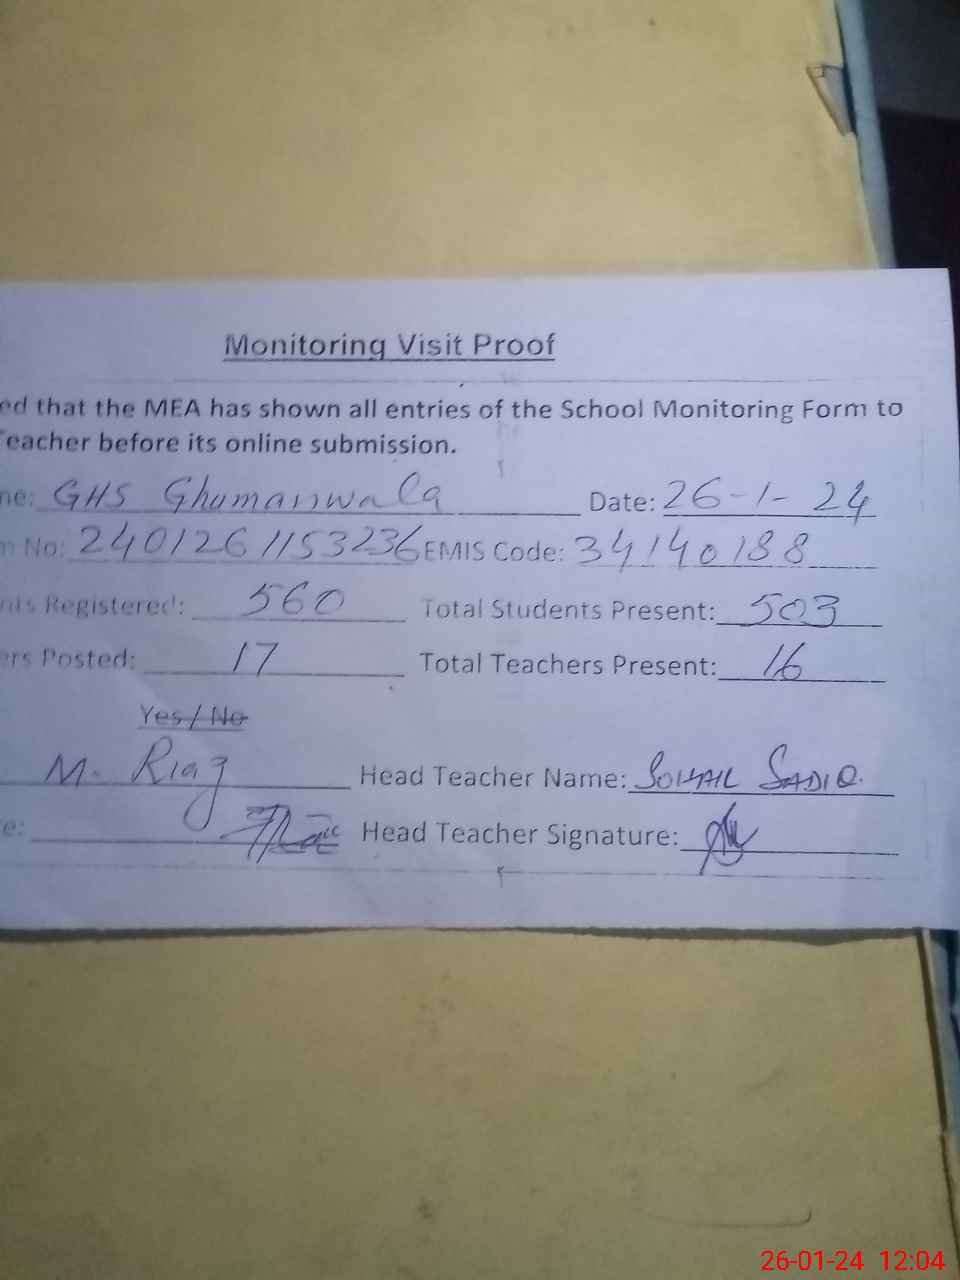 Monitoring Visit Proof
ed that the MEA has shown all entries of the School Monitoring Form to
Teacher before its online submission.
ne: GHS Ghumanwala Date: 26-1-24
n No: 2401261153236 EMIS Code: 34140188
nts Registered: 560 Total Students Present: 503
ers Posted: 17 Total Teachers Present: 16
Yes / No
M. Riaz Head Teacher Name: SOHAIL SADIQ.
e: Head Teacher Signature:
26-01-24 12:04